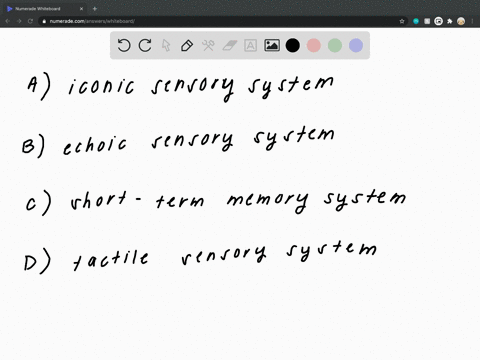 Numerade Whiteboard
numerade.com/answers/whiteboard/
A) iconic sensory system
B) echoic sensory system
C) short-term memory system
D) tactile sensory system